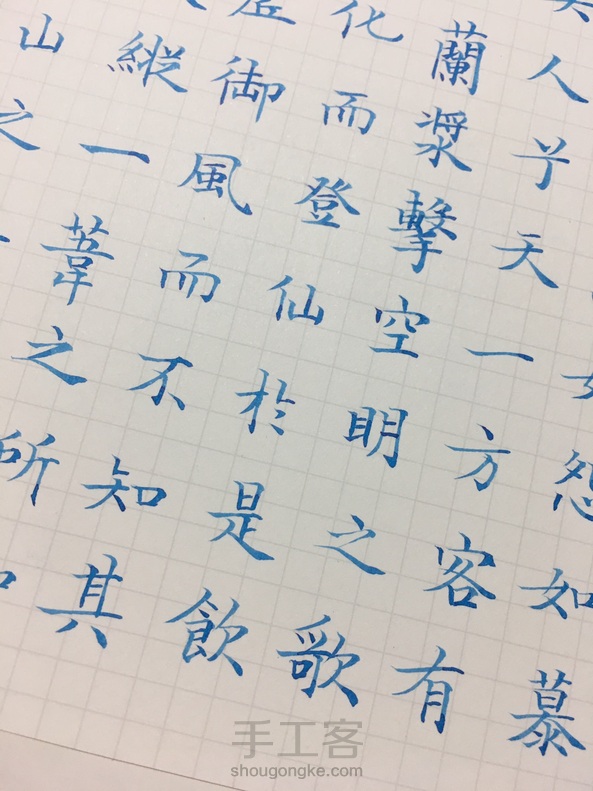 山之
縱一葦之所如
御風而不知其
化而登仙於是飲
蘭槳擊空明之歌
人兮天一方客有
怨如慕
手工客
shougongke.com